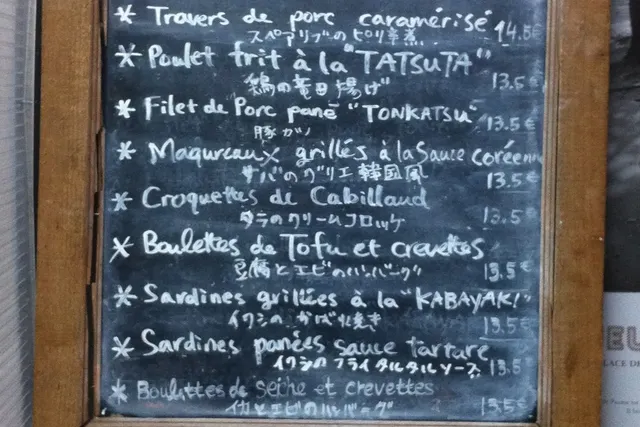 * Travers de porc caramérisé
スペアリブのピリ辛煮 14.5€
* Poulet frit à la "TATSUTA"
鶏の竜田揚げ 13.5€
* Filet de Porc pané "TONKATSU"
豚カツ 13.5€
* Maqureaux grillés à la Sauce coréenn
サバのグリエ韓国風 13.5€
* Croquettes de Cabillaud
タラのクリームコロッケ 13.5€
* Boulettes de Tofu et crevettes
豆腐とエビのハンバーグ 13.5€
* Sardines grillées à la "KABAYAKI"
イワシのかば焼き 13.5€
* Sardines panées sauce tartare
イワシのフライタルタルソース 13.5€
* Boulettes de seche et crevettes
イカとエビのハンバーグ 13.5€
EL
LACE DE